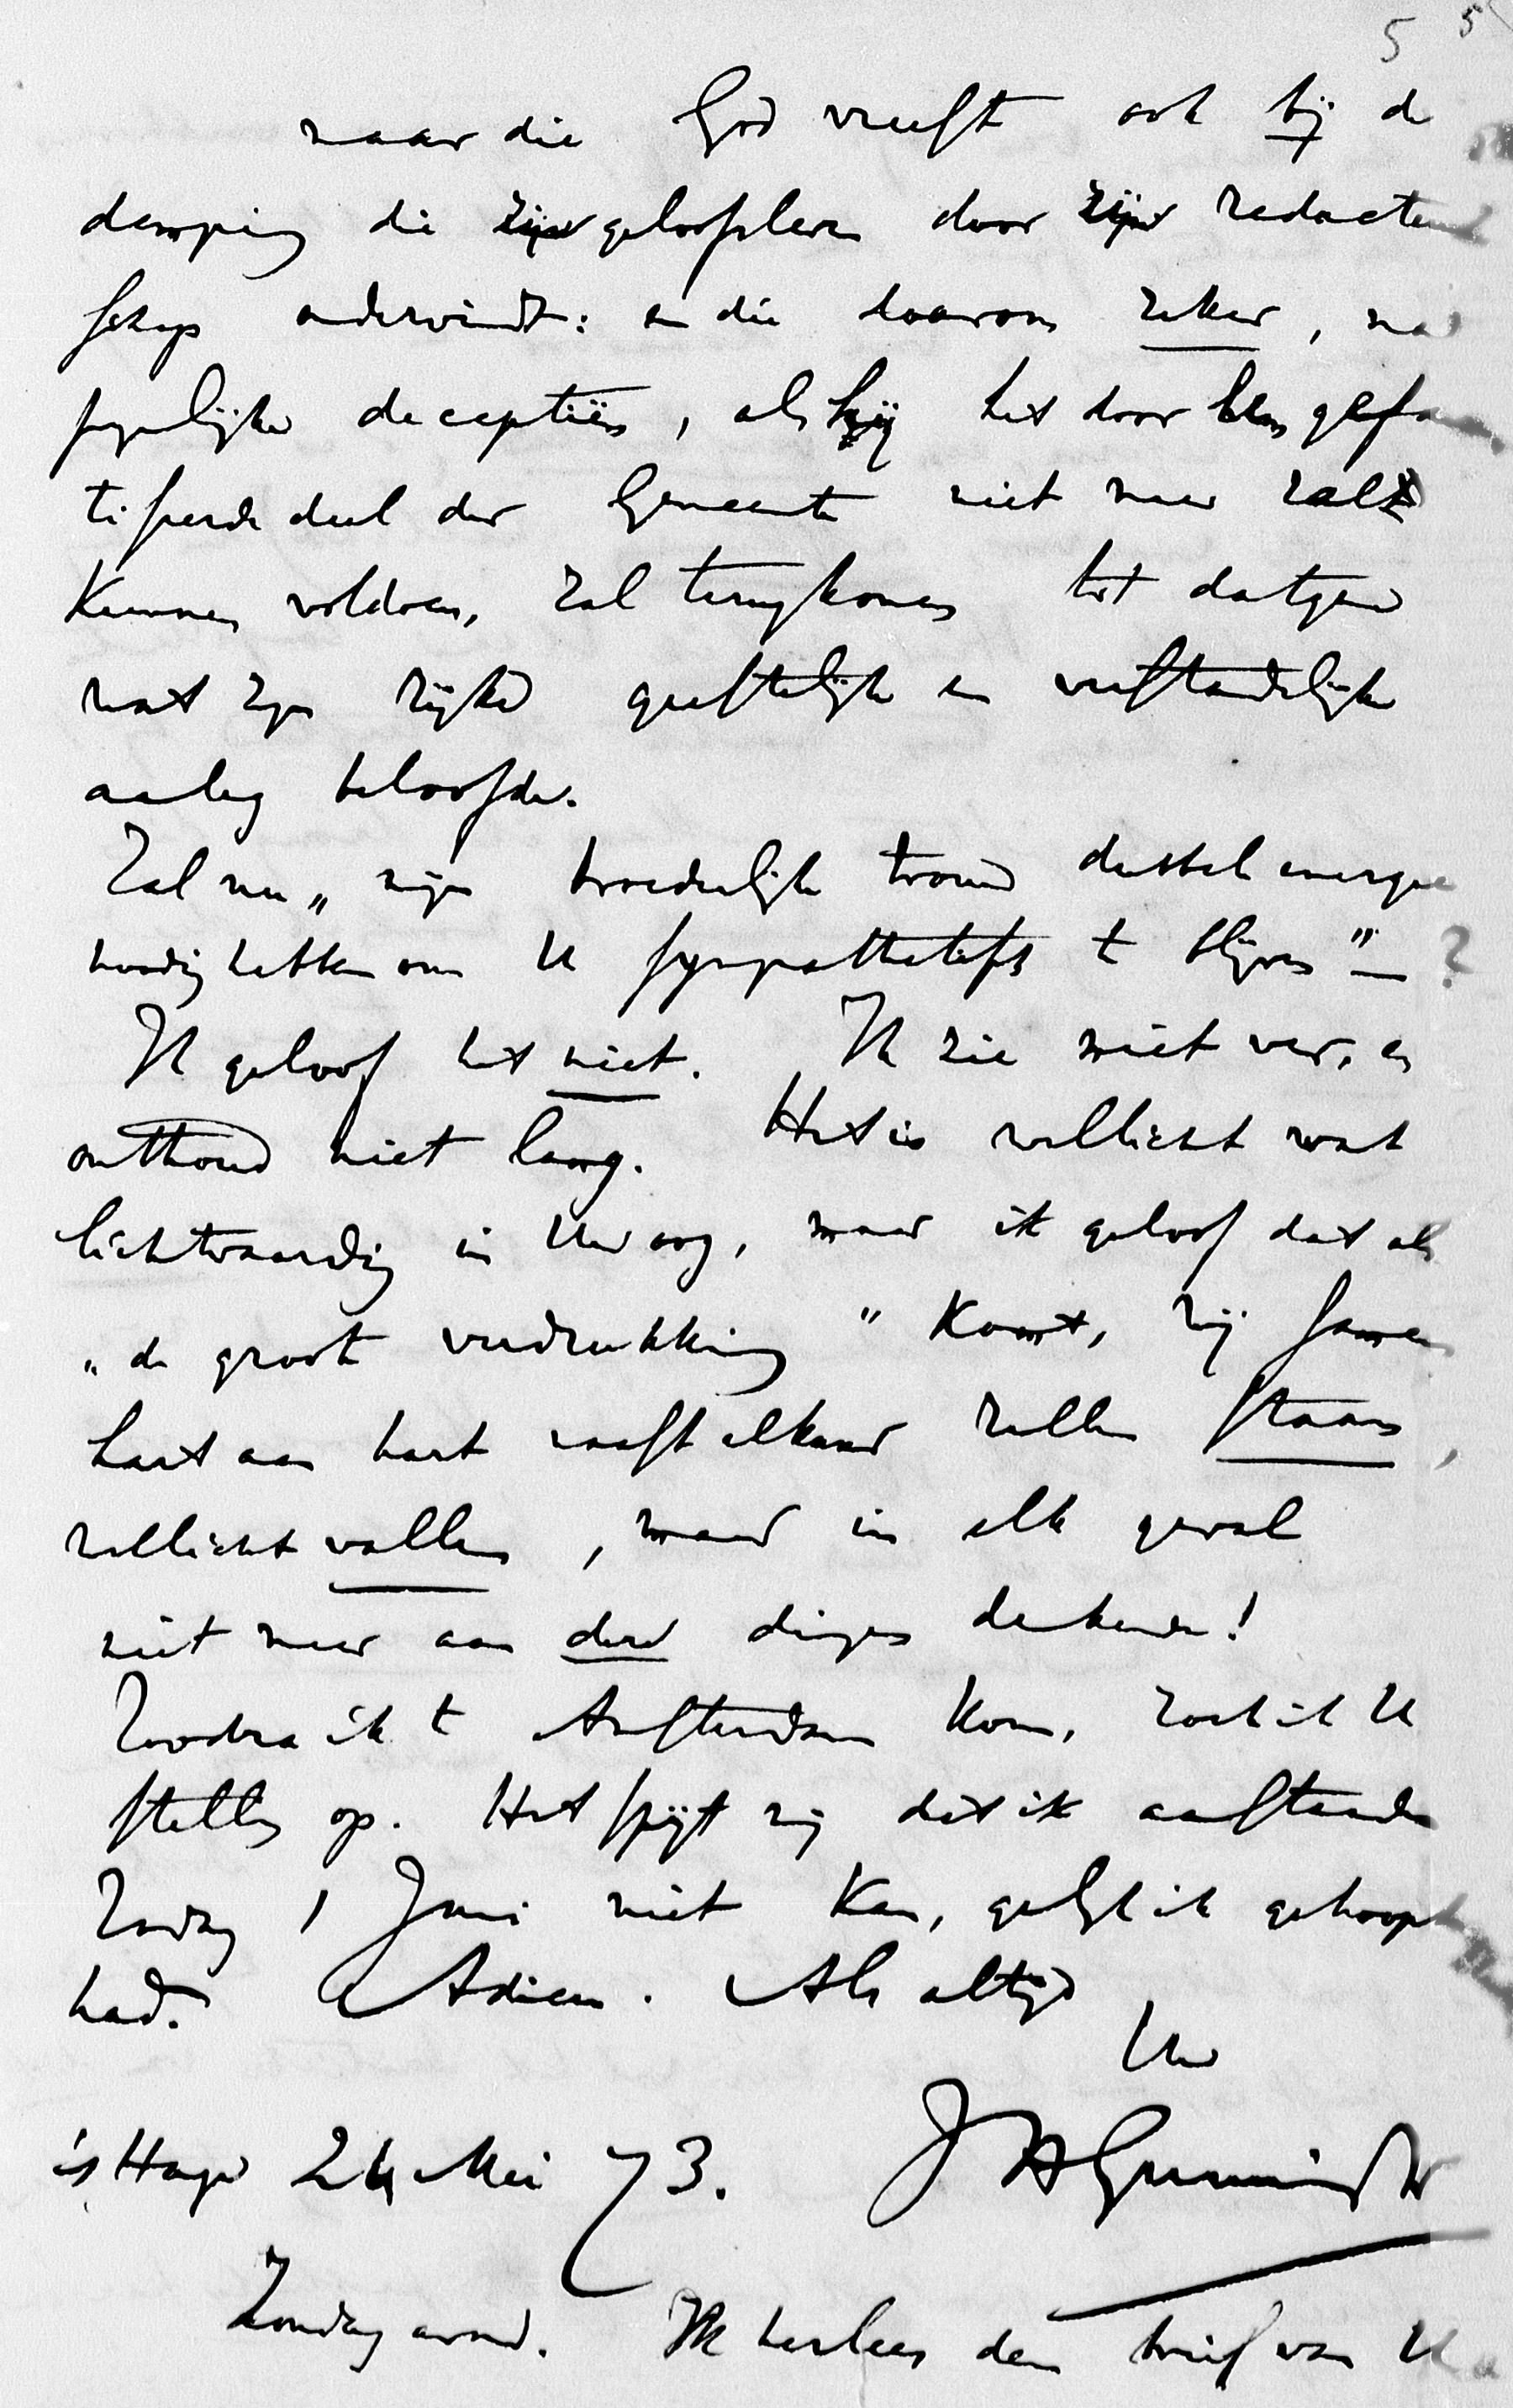 5 5
maar die God vreest ook bij de
demping die zijn geloofsleven door zijn redacteur
schap ondervindt: en die daarom zeker, na
pijnlijke deceptiën, als hij het door hem gefana
tiseerde deel der Gemeente niet meer zal
kunnen voldoen, zal terugkomen tot datgene
wat zijn rijke geestelijke en verstandelijke
aanleg beloofde.
Zal nu „mijn broederlijke trouw dubbele energie
noodig hebben om U sympathetisch te blijven" — ?
Ik geloof het niet. Ik zie niet ver, en
onthoud niet lang. Het is wellicht wat
lichtvaardig in Uw oog, maar ik geloof dat als
„de groote verdrukking" komt, wij samen
hart aan hart naast elkander zullen staan,
wellicht vallen, maar in elk geval
niet meer aan deze dingen denken!
Zoodra ik te Amsterdam kom, zoek ik U
stellig op. Het spijt mij dat ik aanstaande
Zondag 1 Juni niet kan, gelijk ik gehoopt
had. Adieu. Als altijd
Uw
JHGunning JHz
's Hage 24 Mei 73.
Zondag avond. Ik herlees den brief van U